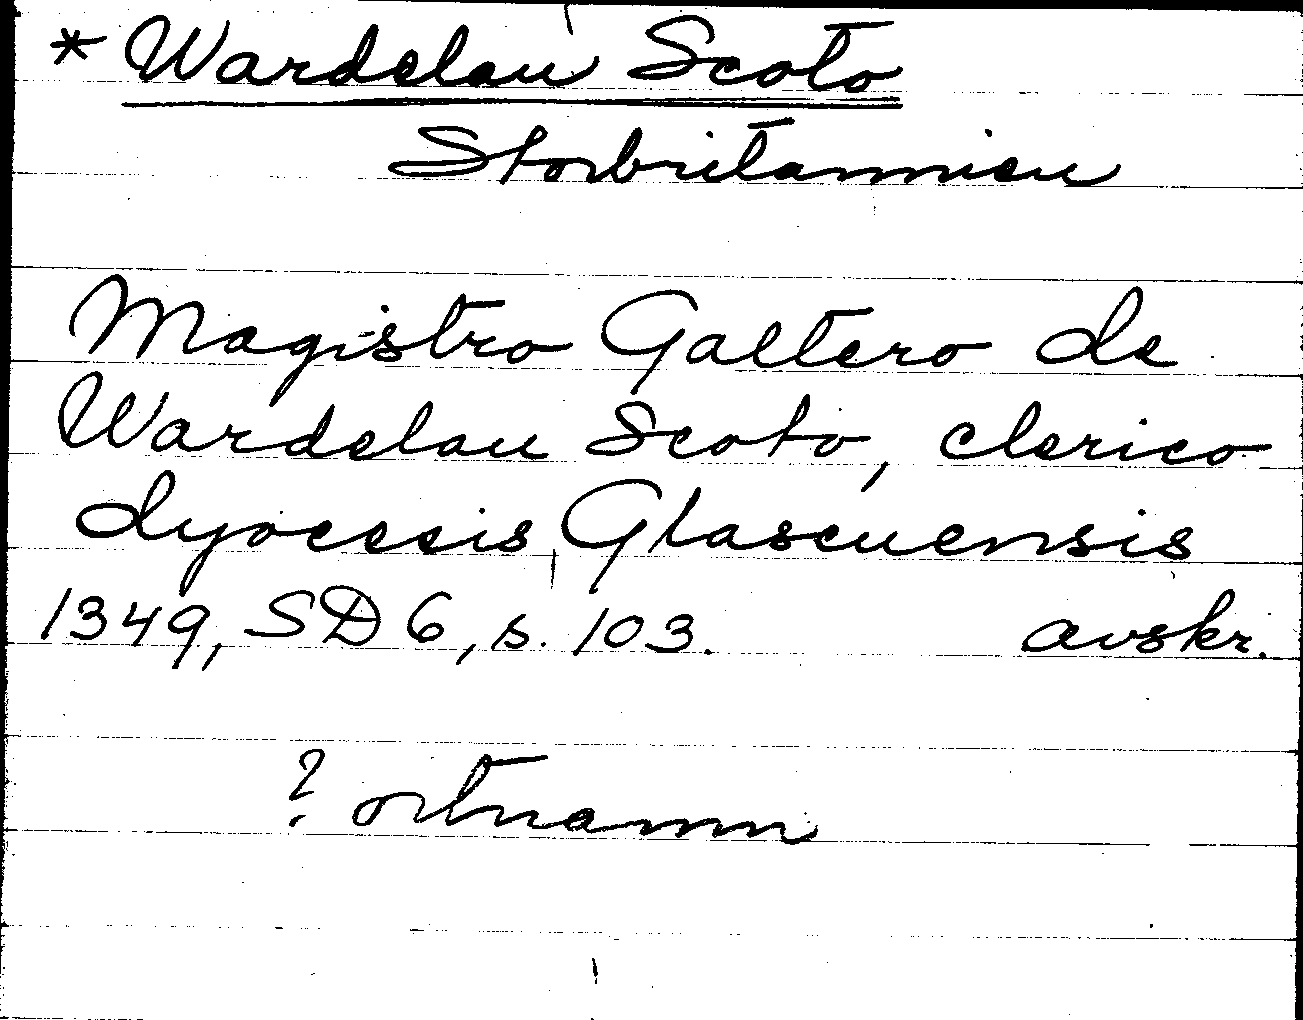 * Wardelau Scoto
Storbritannien
Magistro Galtero de
Wardelau Scoto, clerico
dyocesis Glascuensis
1349, SD 6, s. 103. avskr.
? ortnamn